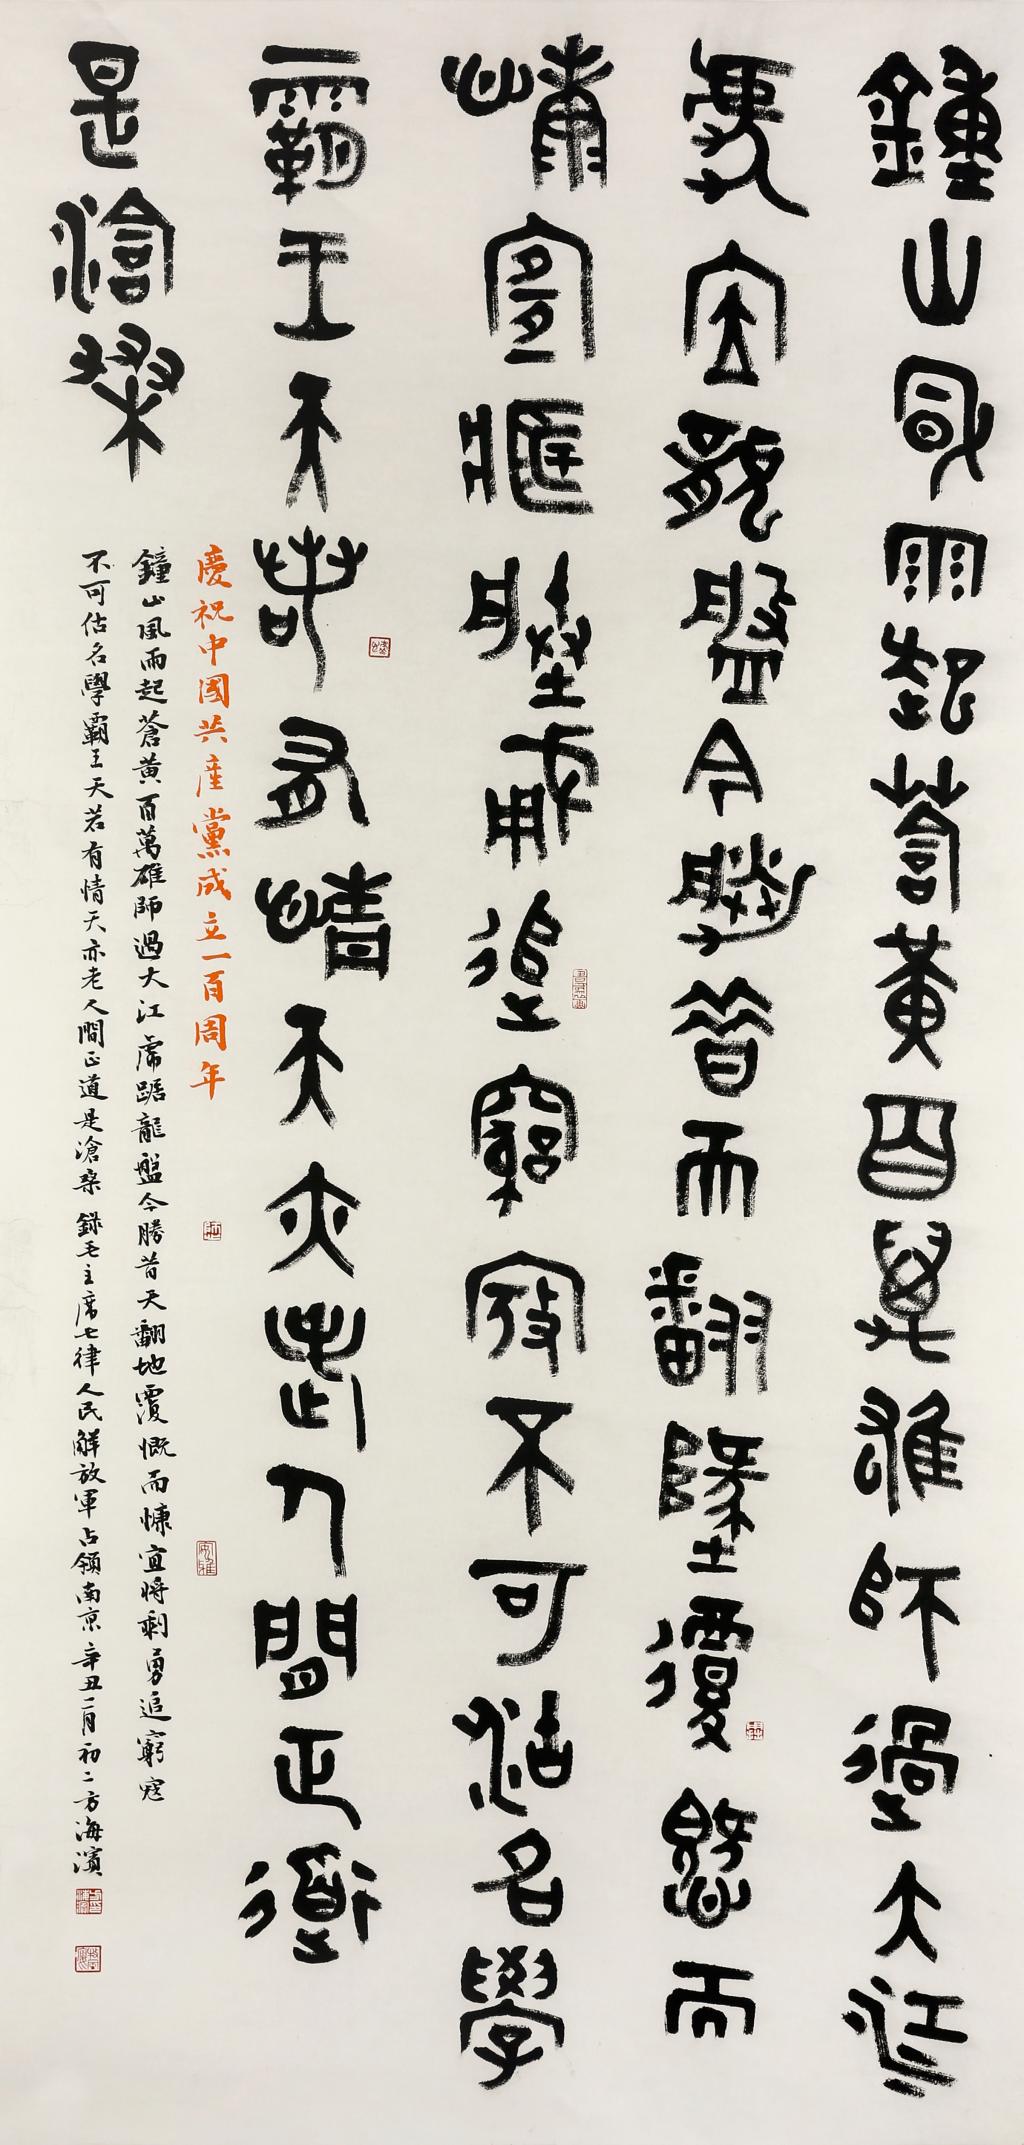 鍾山風雨起蒼黃百萬雄師過大江
虎踞龍盤今勝昔天翻地覆慨而
慷宜將剩勇追窮寇不可沽名學
霸王天若有情天亦老人間正道
是滄桑
慶祝中國共產黨成立一百周年
鐘山風雨起蒼黃百萬雄師過大江虎踞龍盤今勝昔天翻地覆慨而慷宜將剩勇追窮寇
不可估名學霸王天若有情天亦老人間正道是滄桑 錄毛主席七律人民解放軍占領南京 辛丑二月初二方海濱